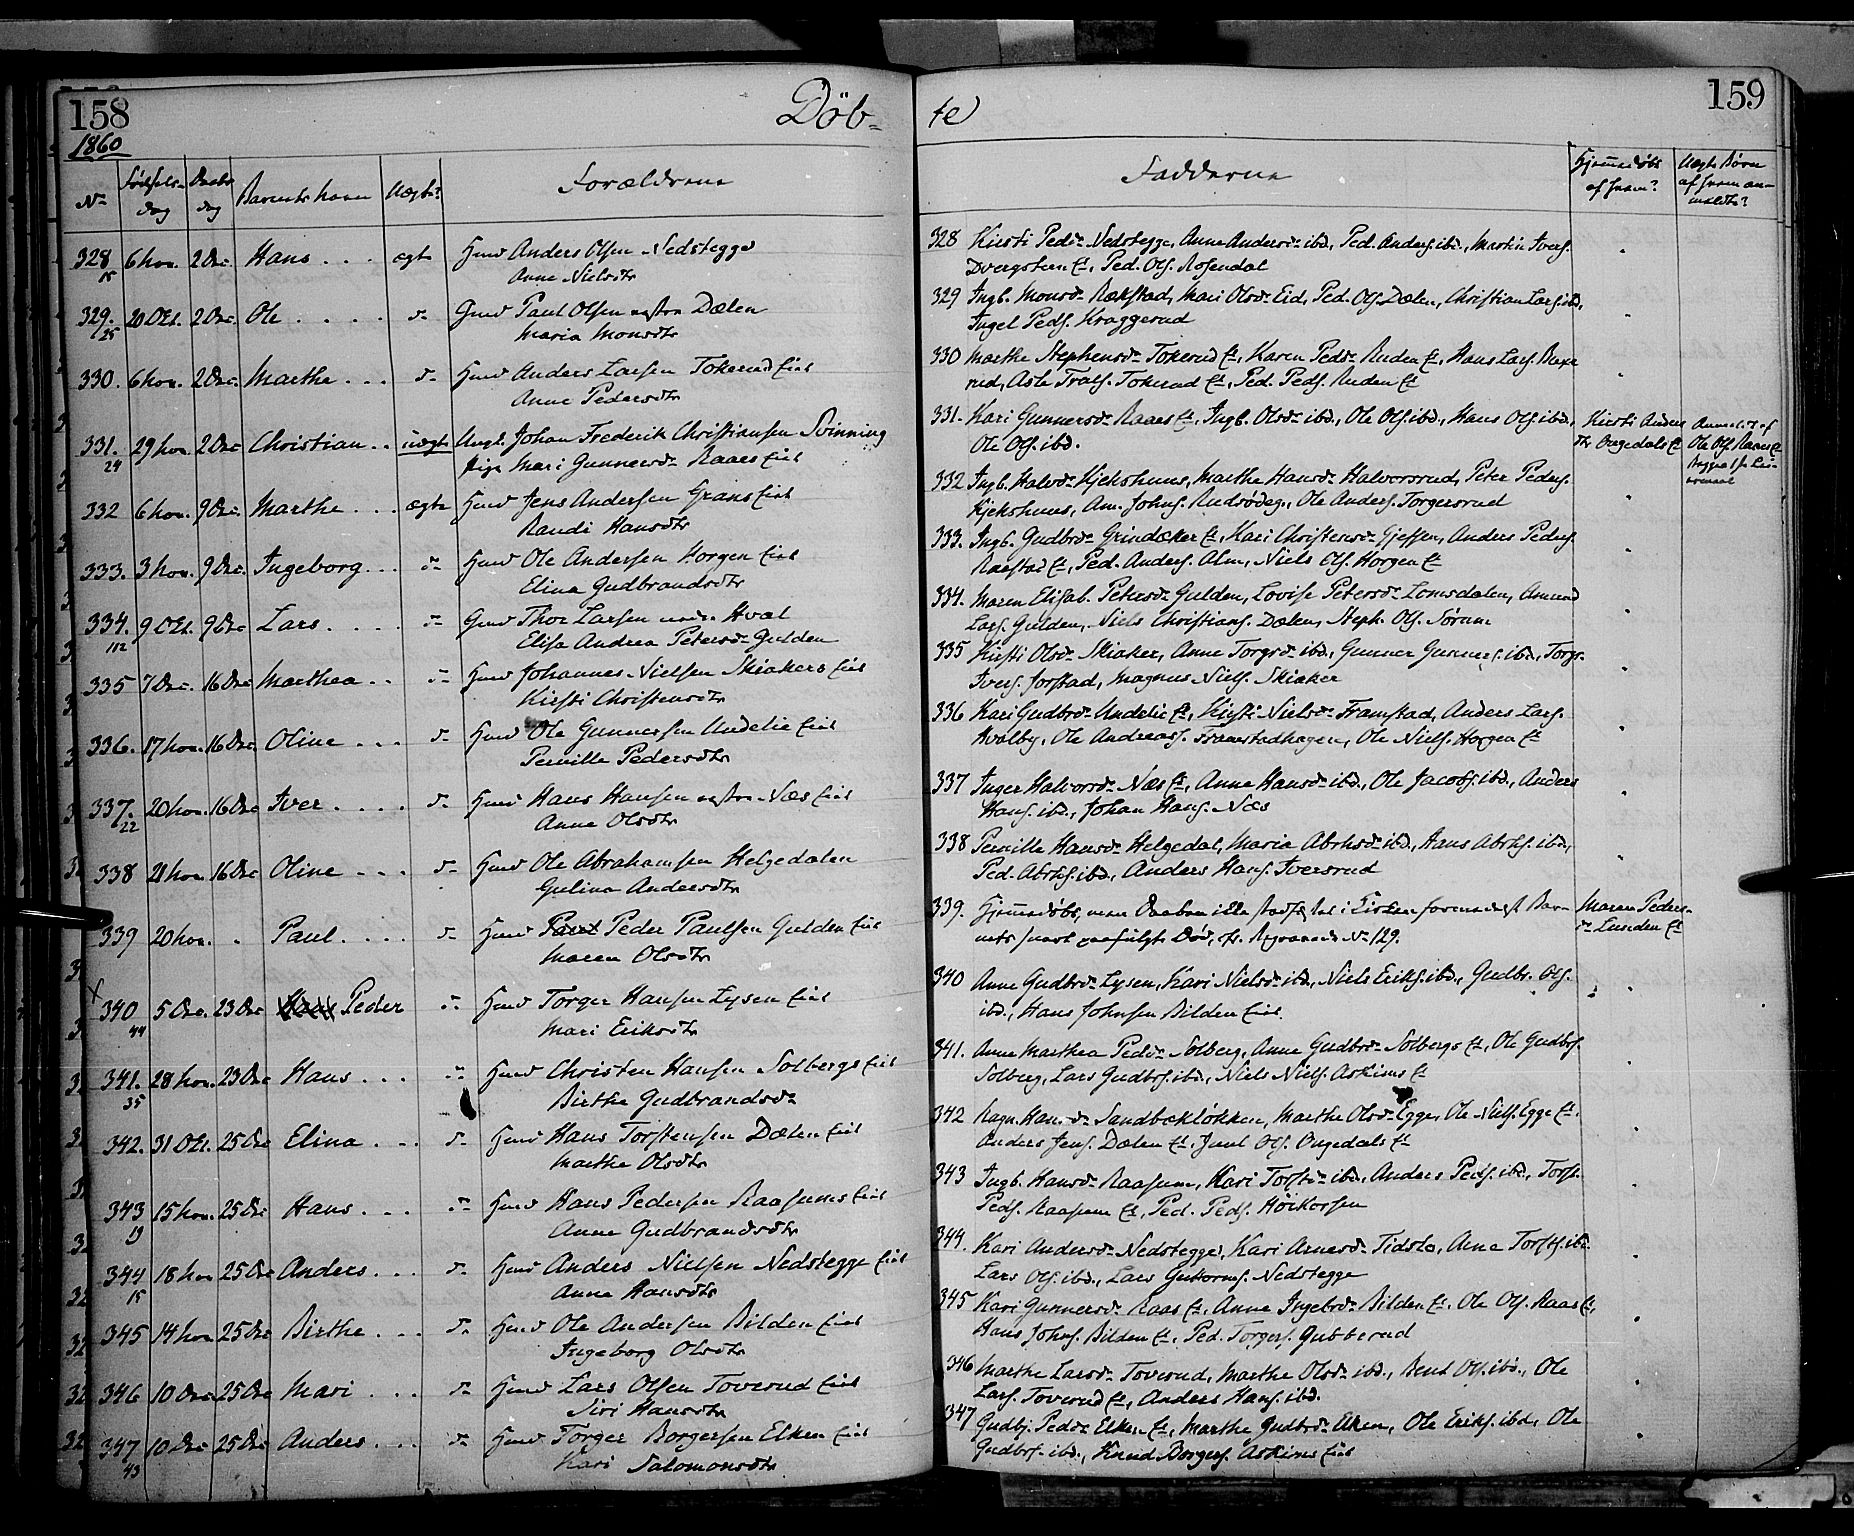 158
1860
Döb-
Nr
Fødsels-
dag
Daabs
dag
Barnets Navn
Uægte?
Forældrene
328 6 Nov. 2 Dec Hans ægte Gmd Anders Olsen Nedstegge
15 Anne Nielsdtr
329. 20 Oct. 2 Dec. Ole d- Gmd Paul Olsen Dælen
25 Maria Monsdtr
330. 6 Nov. 2 Dec. Marthe d- Hmd Anders Larsen Tokerud Eiet
Anne Pedersdtr
331. 29 Nov. 2 Dec Christian uægte Ungk. Johan Frederik Christiansen Svinning
24 Pige Mari Gunnersdr Raaes Eiet
332 6 Nov. 9 Dec. Marthe ægte Hmd Jens Andersen Grans Eiet
Randi Hansdtr
333. 3 Nov. 9 Dec. Ingeborg d- Hmd Ole Andersen Horgen Eiet
Elina Gudbrandsdtr
334. 9 Oct. 9 Dec Lars d- Gmd Thor Larsen Hval
112 Elise Andrea Petersdr Gulden
335 7 Dec. 16 Dec Marthea d- Hmd Johannes Nielsen Skiakers Eiet
Kirsti Christensdtr
336. 17 Nov. 16 Dec. Oline d- Hmd Ole Gunnersen Undelie Eiet
Pernille Pedersdtr
337. 20 Nov. 16 Dec Iver d- Hmd Hans Hansen Næs Eiet
22 Anne Olsdtr
338 21 Nov. 16 Dec Oline d- Hmd Ole Abrahamsen Helgedalen
Gulina Andersdtr
339 20 Nov. Paul d- Hmd Peder Paulsen Gulden Eiet
Maren Olsdtr
340 5 Dec. 23 Dec Peder d- Hmd Torger Hansen Lysen Eiet
44 Mari Eriksdtr
341. 28 Nov. 23 Dec Hans d- Hmd Christen Hansen Solbergs Eiet
35 Birthe Gudbrandsdr
342. 31 Oct. 25 Dec Elina d- Hmd Hans Torstensen Dælen Eiet
Marthe Olsdtr
343 15 Nov. 25 Dec Hans d- Hmd Hans Pedersen Raasums Eiet
19 Anne Gudbrandsdtr
344 18 Nov 25 Dec Anders d- Hmd Anders Nielsen Nedstegge Eiet
15 Anne Hansdtr
345 14 Nov 25 Dec Birthe d- Hmd Ole Andersen Bilden Eiet
Ingeborg Olsdtr
346 10 Dec 25 Dec Mari d- Hmd Lars Olsen Toverud Eiet
Siri Hansdtr
347 10 Dec 25 Dec Anders d- Hmd Torger Borgersen Elken Eiet
43 Kari Salomonsdtr
159
te
Fadderne
Hjemmedøbt
af hvem?
Uægte Børn
af hvem an-
meldte?
328 Kirsti Pedr Nedstegge, Anne Andersdr ibd., Ped. Anders. ibd., Martin Ivers.
Dvergsten Et, Ped. Ols. Rosendal
329 Ingb. Monsdr Rækstad, Mari Olsdr Eid, Ped. Ols. Dælen, Christian Lars. ibd.,
Ingel Peds. Kraggerud
330 Marthe Stephensdr Tokerud Et, Karen Pedsdr Ruden Et, Hans Lars.
rud, Asle Trols. Tokerud Et, Ped. Peds. Ruden Et
331. Kari Gunnersdr Raaes Et, Ingb. Olsdr ibd., Ole Ols. ibd., Hans Ols. ibd., Kirsti Anders
Ole Ols. ibd. dtr Ongedals Et Ole Ols. Raaes Et
332 Ingb. Halvdr Kjekshuus, Marthe Hansdr Halvorsrud, Peter Peders.
Kjekshuus, Am. Johns. Rudsødeg., Ole Anders. Torgersrud
333. Ingb. Gudbrdr Grindaker Et, Kari Christensdr Gjeffsen, Anders Peders.
Raastad Et, Ped. Anders. Alm, Niels Ols. Horgen Et
334. Maren Elisab. Petersdr Gulden, Lovise Petersdr Lomsdalen, Amund
Lars. Gulden, Niels Christians. Dælen, Steph. Ols. Sørum
335 Kirsti Olsdr Skiaker, Anne Torgsdr ibd., Gunner Gunners. ibd., Torgr.
Ivers. Jorstad, Magnus Niels. Skiaker
336 Kari Gudbrdr Undelie Et, Kirsti Nielsdr Framstad, Anders Lars.
Hvalby, Ole Andreas. Framstadhagen, Ole Niels. Horgen Et
337 Inger Halvorsdr Næs Et, Anne Hansdr ibd., Ole Jacobs. ibd., Anders
Hans. ibd., Johan Hans. Næs
338 Pernille Hansdr Helgedal, Maria Abrhsdr ibd., Hans Abrhs. ibd.,
Ped. Abrhs. ibd., Anders Hans. Iversrud
339. Hjemmedøbt, men Daaben ikke stadfæstet i Kirken formedelst Bar- Maren Peders-
nets snart paafulgte Død, cfr. Begravede No 129. dr Lunden Et
340 Anne Gudbrdr Lysen, Kari Nielsdr ibd., Niels Eriks. ibd., Gudbr. Ols.
ibd., Hans Johnsen Bilden Eiet.
341. Anne Marthea Pedsdr Solberg, Anne Gudbrdr Solbergs Et, Ole Gudbrs.
Solberg, Lars Gudbrs. ibd., Niels Niels. Askims Et
342 Ragn. Hansdr Sandbækløkken, Marthe Olsdr Egge, Ole Niels. Egge Et.
Anders Jens. Dælen Et, Juul Ols. Ongedals Et
343 Ingb. Hansdr Raasum, Kari Torstsdr ibd., Anders Peds. ibd., Torst.
Peds. Raasum Et, Ped. Peds. Høikorsen
344. Kari Andersdr Nedstegge, Kari Arnesdr Tidslo, Arne Torsts. ibd.
Lars Ols. ibd., Lars Guttorms. Nedstegge
345 Kari Gunnersdr Raas Et, Anne Ingebrdr Bilden Et. Ole Ols. Raas Et,
Hans Johns. Bilden Et, Ped. Torgers. Gubberud
346 Marthe Larsdr Toverud, Marthe Olsdr ibd., Bent Ols. ibd., Ole
Lars. Toverud Et, Anders Hans. ibd.
347 Gudbj. Pedsdr Elken Et, Marthe Gudbrdr Elken, Ole Eriks. ibd., Ole
Gudbrs. ibd., Knud Borgers. Askims Eiet